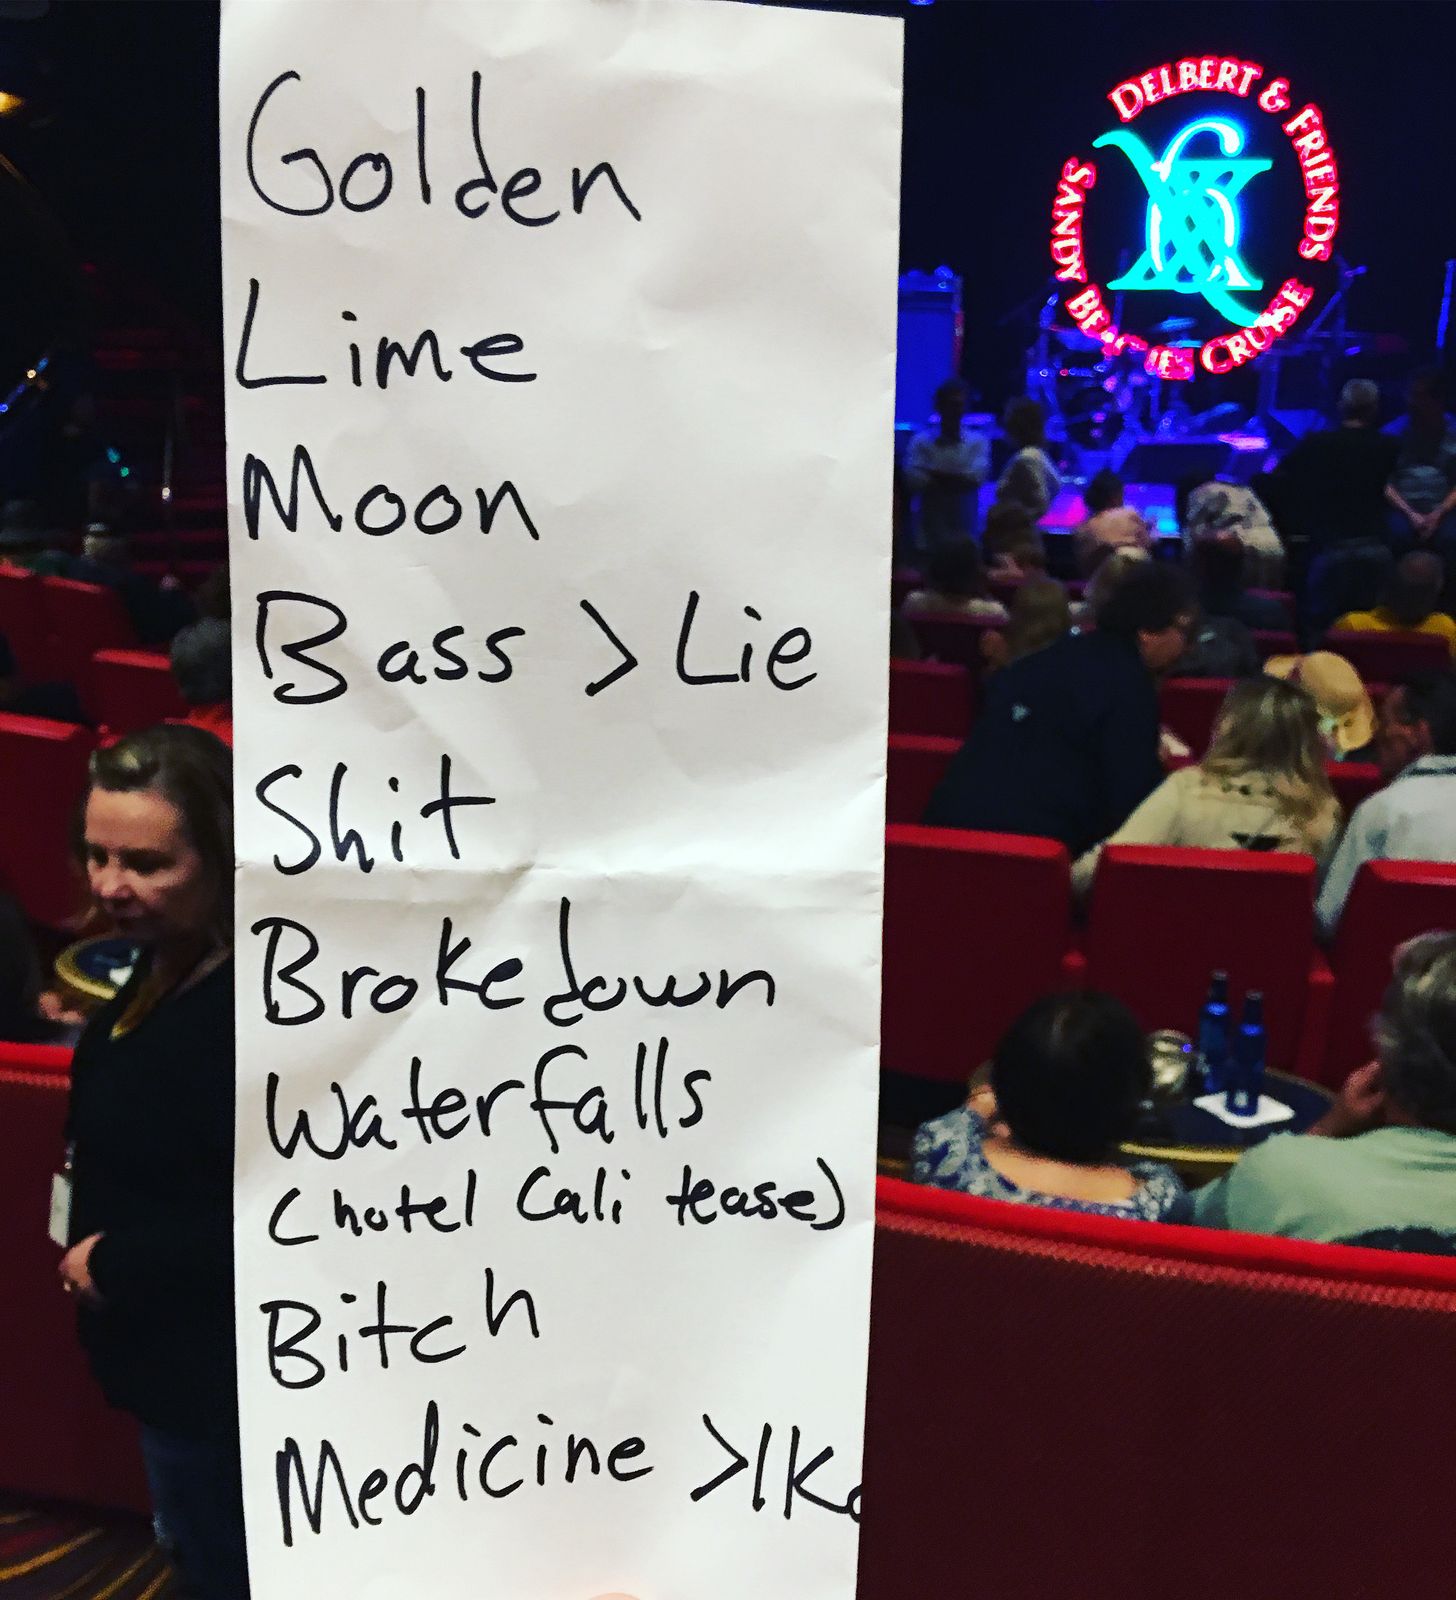 Golden
Lime
Moon
Bass > Lie
Shit
Brokedown
Waterfalls
(hotel Cali tease)
Bitch
Medicine > Iko
DELBERT & FRIENDS
SANDY BEACHES CRUISE